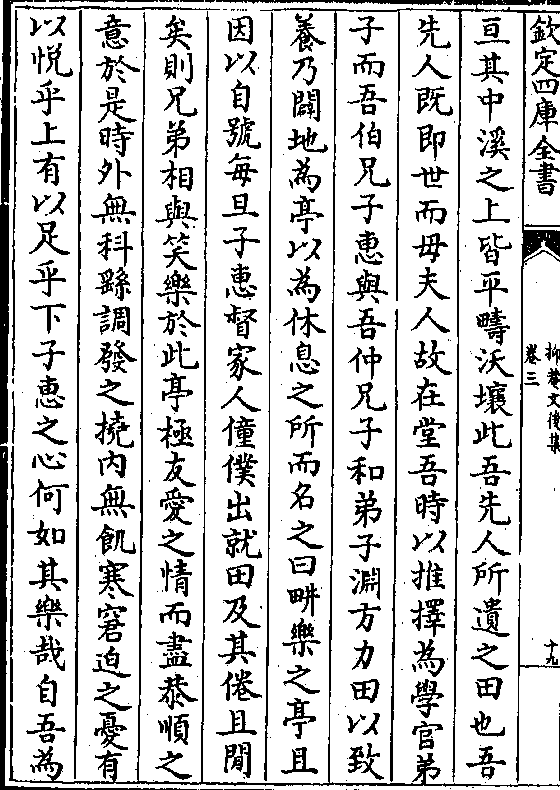 欽定四庫全書
卷三
十九
亘其中溪之上皆平疇沃壤此吾先人所遺之田也吾
先人既即世而母夫人故在堂吾時以推擇為學官弟
子而吾伯兄子惠與吾仲兄子和弟子淵方力田以致
養乃闢地為亭以為休息之所而名之曰畊樂之亭且
因以自號每旦子惠督家人僮僕出就田及其倦且閒
矣則兄弟相與笑樂於此亭極友愛之情而盡恭順之
意於是時外無科繇調發之撓内無飢寒窘迫之憂有
以悦乎上有以足乎下子惠之心何如其樂哉自吾為